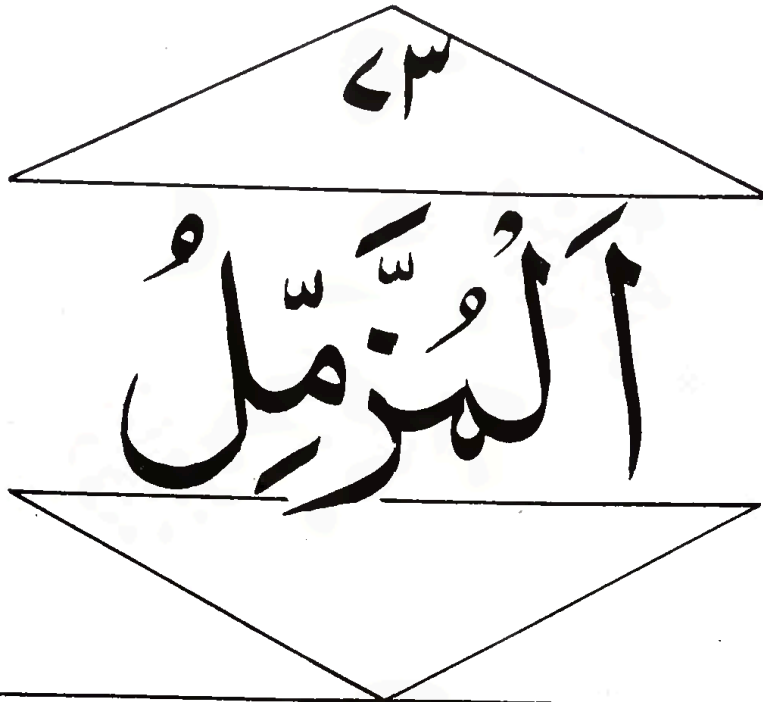 ۷۳
اَلْمُزَّمِّلُ